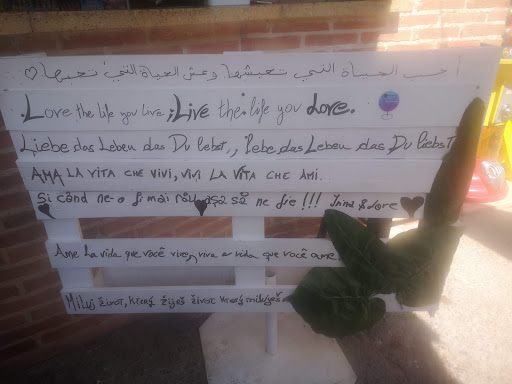 أحب الحياة التي تعيشها وعش الحياة التي تحبها
Love the life you live, Live the life you Love.
Liebe das Leben das Du lebst,, lebe das Leben das Du liebst
AMA LA VITA CHE VIVI, VIVI LA VITA CHE AMI.
Și când ne-o fi mai rău așa să ne fie!!! Inna &
Ame La vida que você vive, viva a vida que você ame
Miluj život, který žiješ život který miluješ